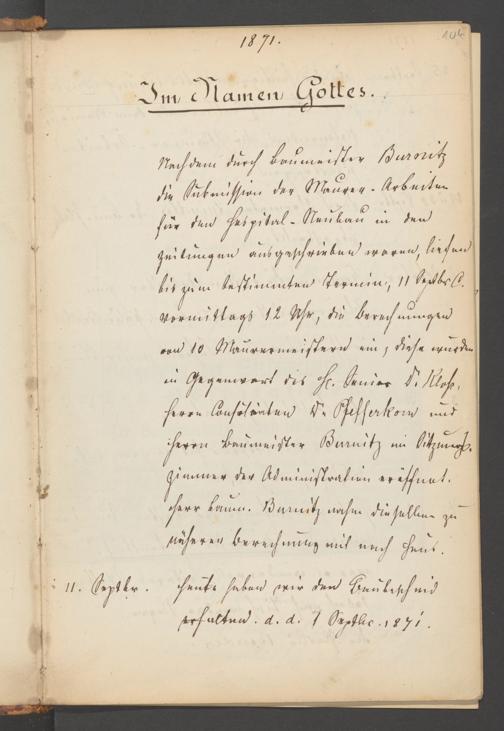 1871.
104
Im Namen Gottes.
Nachdem durch Baumeister Burnitz
die Submission der Maurer-Arbeiten
für den Hospital-Neubau in den
Zeitungen ausgeschrieben waren, liefen
bis zum bestimmten Termin, 11 Septbr. C.
Vormittags 12 Uhr, die Berechnungen
von 10 Maurermeistern ein; diese wurden
in Gegenwart des H. Senior Dr. Kloß,
Herrn Consistorialen Dr. Pfefferkorn und
Herrn Baumeister Burnitz im Sitzungs-
zimmer der Administration eröffnet.
Herr Baum. Burnitz nahm dieselben zu
näheren Berechnung mit nach Haus.
11. Septbr. Heute haben wir den Baubescheid
erhalten. d. d. 1 Septbr. 1871.